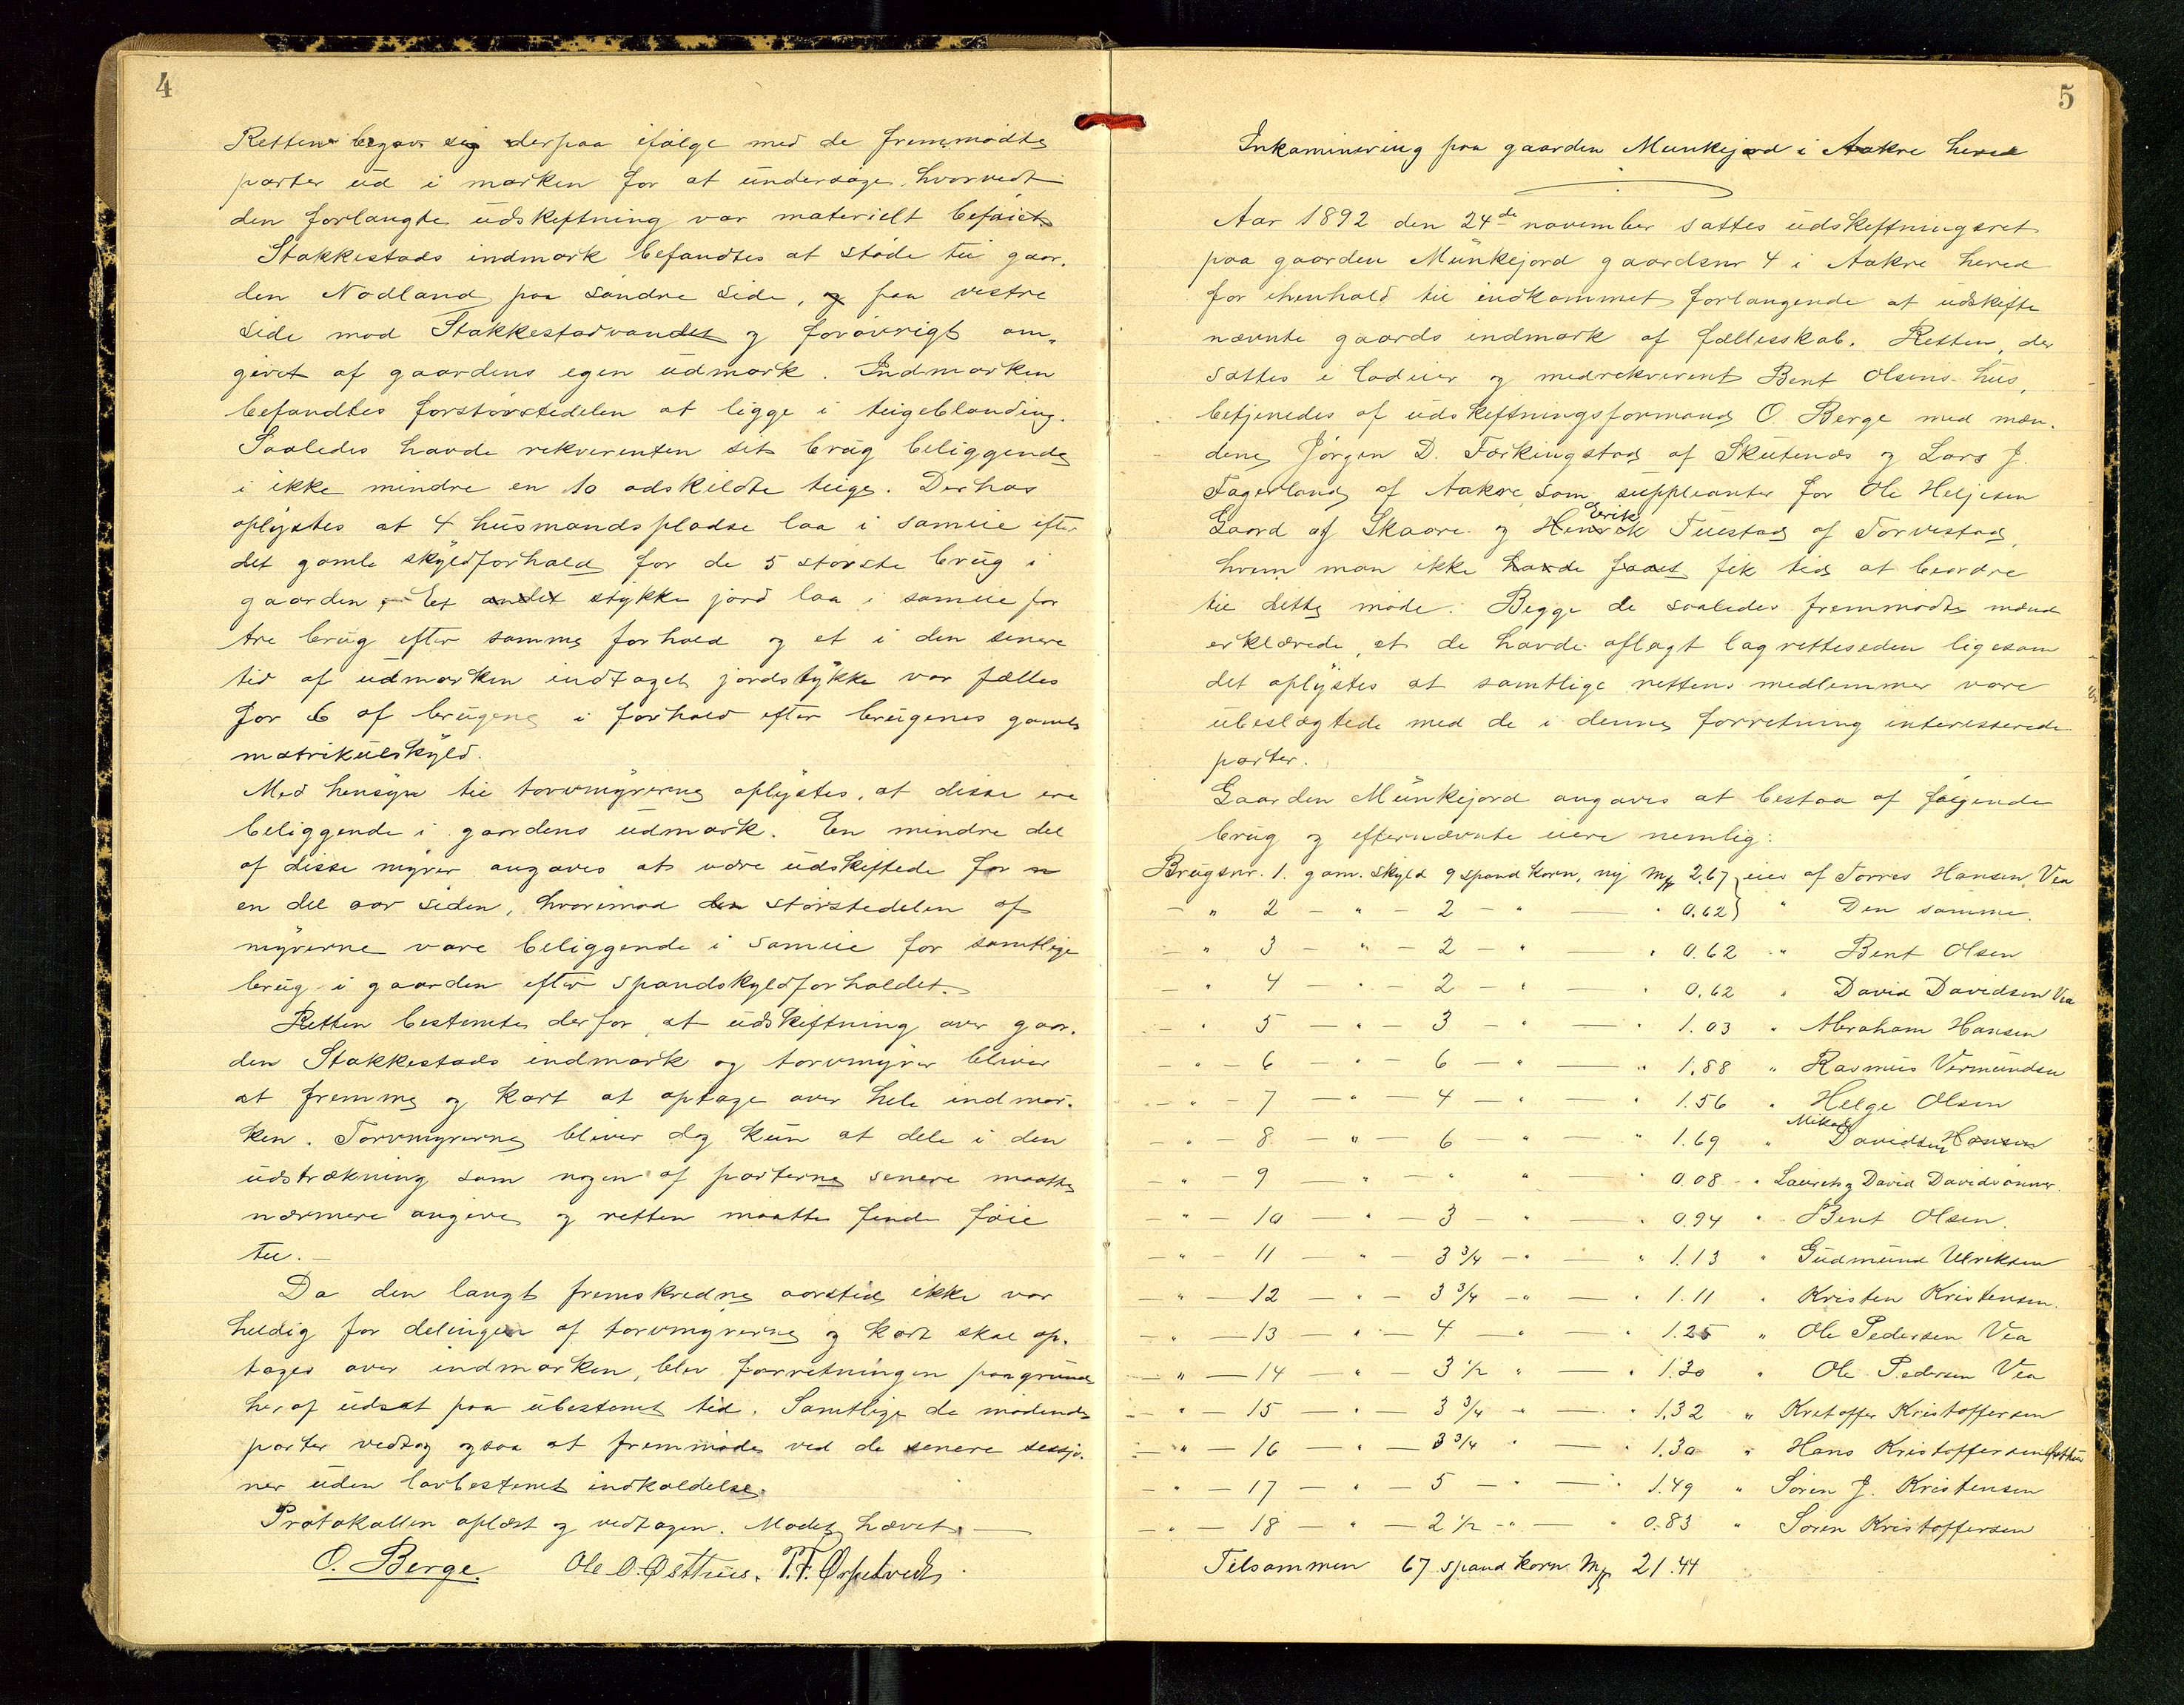 4
Retten begav sig derpaa ifølge med de fremmødte
parter ud i marken for at undersøge, hvorvidt
den forlangte udskiftning var materielt beføiet.
Stakkestads indmark befandtes at støde til gaar,
den Nodland paa søndre side, og paa vestre
side mod Stakkestadvandet og forøvrigt om,
givet af gaardens egen udmark. Indmarken
befandtes forstørstedelen at ligge i teigeblanding.
Saaledes havde rekverenten sit brug beliggende
i ikke mindre en 10 adskildte teige. Derhos
oplystes at 4 husmandspladse laa i sameie efter
det gamle skyldforhold for de 5 største brug i
gaarden. Et andet stykke jord laa i sameie for
tre brug efter samme forhold og et i den senere
tid af udmarken indtaget jordstykke var fælles
for 6 af brugene i forhold efter brugenes gamle
matrikulskyld.
Med hensyn til torvmyrerne oplystes, at disse ere
beliggende i gaardens udmark. En mindre del
af disse myrer angaves at være udskiftede for n
en del aar siden, hvorimod den størstedelen af
myrerne vare beliggende i sameie for samtlige
brug i gaarden efter spandskyldforholdet.
Retten bestemte derfor, at udskiftning over gaar,
den Stakkestads indmark og torvmyrer bliver
at fremme og kart at optage over hele indmar,
ken. Torvmyrerne bliver dog kun at dele i den
udstrækning som nogen af parterne senere maatte
nærmere angive og retten maatte finde føie
til. —
Da den langt fremskredne aarstid ikke var
heldig for delingen af torvmyrerne og kart skal op,
tages over indmarken, blev forretningen paagrund
heraf udsat paa ubestemt tid. Samtlige de mødende
parter vedtog ogsaa at fremmøde ved de senere sessjo,
ner uden lovbestemt indkaldelse.
Protokollen oplæst og vedtagen. Mødet hævet. —
O. Berge. Ole O. Østhus. T. T.
5
Inkaminering paa gaarden Munkejord i Aakre hered
Aar 1892 den 24de november sattes udskiftningsret
paa gaarden Munkejord gaardsnr 4 i Aakre hered
for ihenhold til indkommet forlangende at udskifte
nævnte gaards indmark af fællesskab. Retten, der
sattes i lodeier og medrekvirent Bent Olsens hus,
betjenedes af udskiftningsformand O. Berge med mæn,
dene Jørgen D. Færkingstad af Skudenes og Lars J.
Fagerland af Aakre som suppleanter for Ole Heljesen
Gaard af Skaare og Henrik Erik Tuestad af Torvestad,
hvem man ikke havde faaet fik tid at beordre
til dette møde. Begge de saaledes fremmødte mænd
erklærede, at de havde aflagt lagretteseden ligesom
det oplystes at samtlige rettens medlemmer vare
ubeslægtede med de i denne forretning interesserede
parter.
Gaarden Munkejord angaves at bestaa af følgende
brug og efternævnte eiere nemlig:
Brugsnr. 1. gam. skyld 9 spand korn, ny Mk 2.67 } eies af Torres Hansen Vea
— " 2 — " — 2 — " — " 0.62 } " Den samme.
— " 3 — " — 2 — " — " 0.62 " Bent Olsen
— " 4 — " — 2 — " — " 0.62 " David Davidsen Vea
— " 5 — " — 3 — " — " 1.03 " Abraham Hansen
— " — 6 — " — 6 — " — " 1.88 " Rasmus Vermundsen
— " — 7 — " — 4 — " — " 1.56 " Helge Olsen
— " — 8 — " — 6 — " — " 1.69 " Mikal Davidsen Hansen
— " — 9 — " — " — " 0.08 — " Laurits og David Davidsønner.
— " — 10 — " — 3 — " — " 0.94 " Bent Olsen.
— " — 11 — " — 3 3/4 — " — " 1.13 " Gudmund Ulriksen
— " — 12 — " — 3 3/4 — " — " 1.11 " Kristen Kristensen.
— " — 13 — " — 4 — " — " 1.25 " Ole Pedersen Vea
— " — 14 — " — 3 1/2 " — " 1.30 " Ole Pedersen Vea
— " — 15 — " — 3 3/4 — " — " 1.32 " Kristoffer Kristoffersen
— " — 16 — " — 3 3/4 " — " 1.30 " Hans Kristoffersen Østhus
— " — 17 — " — 5 — " — " 1.49 " Søren J. Kristensen
— " — 18 — " — 2 1/2 — " — " 0.83 " Søren Kristoffersen
Tilsammen 67 spand korn Mk 21.44